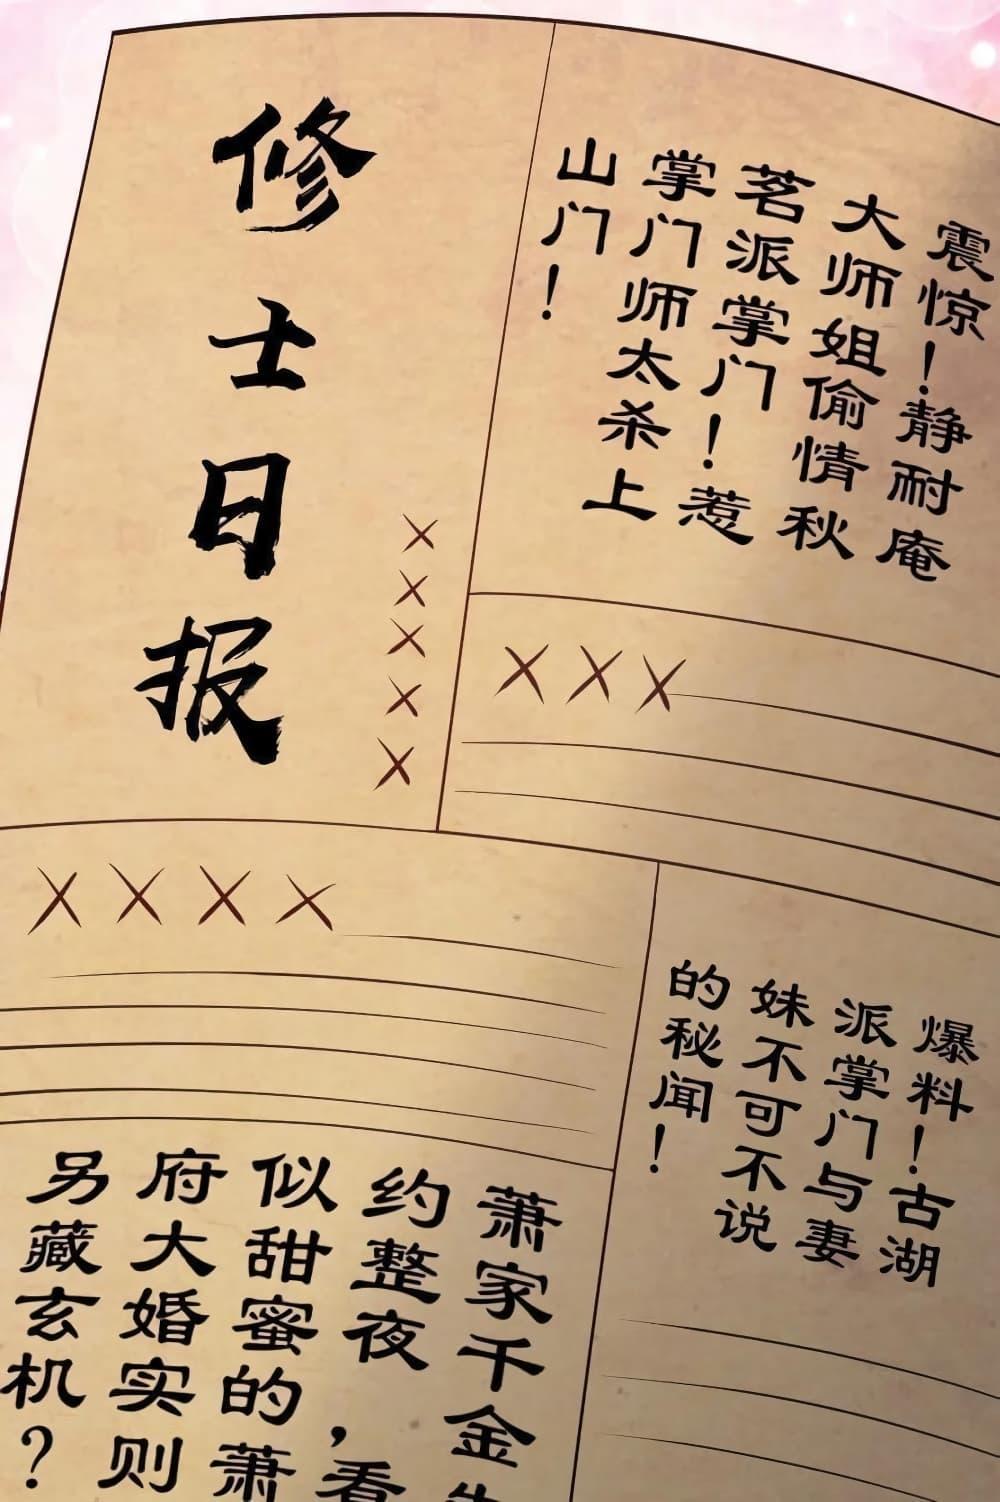 修士日报
×××××
震惊！静耐庵
大师姐偷情秋
茗派掌门！惹
掌门师太杀上
山门！
×××
××××
爆料！古湖
派掌门与妻
妹不可不说
的秘闻！
萧家千金
约整夜，看
似甜蜜的萧
府大婚实则
另藏玄机？